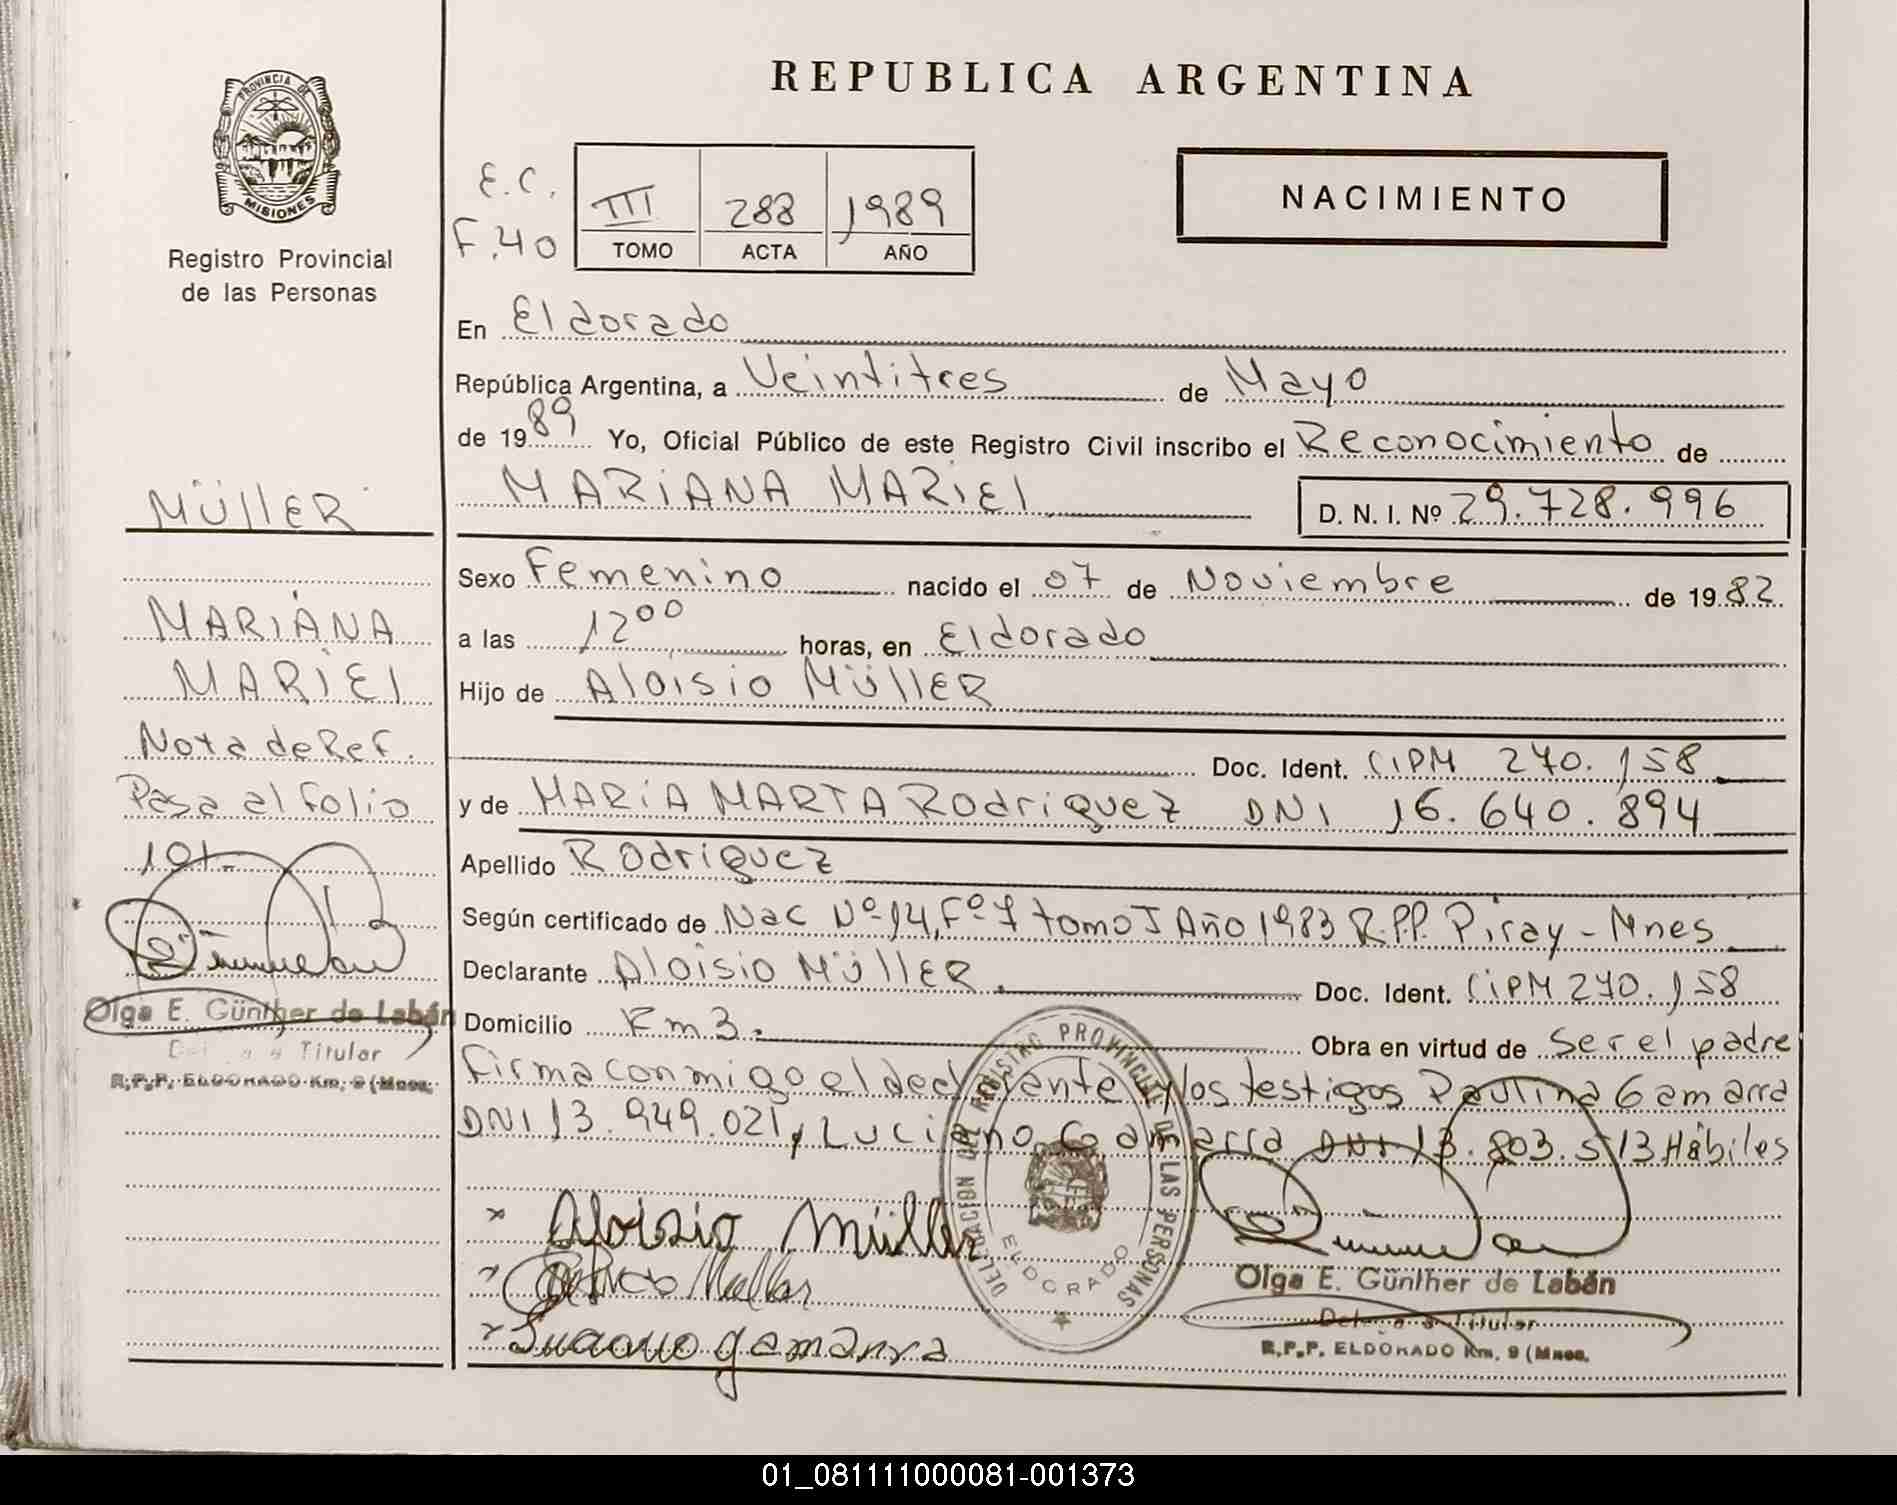 REPUBLICA ARGENTINA
PROVINCIA DE
MISIONES
Registro Provincial
de las Personas
E.C.
F.40
III 288 1989
TOMO ACTA AÑO
NACIMIENTO
En Eldorado
República Argentina, a Veintitres de Mayo
de 1989 Yo, Oficial Público de este Registro Civil inscribo el Reconocimiento de
MARIANA MARIEL D. N. I. Nº 29.728.996
Sexo Femenino nacido el 07 de Noviembre de 1982
a las 1200 horas, en Eldorado
Hijo de Aloisio MüllER
Doc. Ident. CIPM 270.158
y de MARIA MARTA Rodriguez DNI 16.640.894
Apellido Rodriguez
Según certificado de Nac Nº 14, Fº 7 tomo I Año 1983 R.P.P. Piray - Mnes
Declarante Aloisio MüllER. Doc. Ident. CIPM 270.158
Domicilio Km 3. Obra en virtud de ser el padre
Firma conmigo el declarante y los testigos Paulina Gamarra
DNI 13.949.021, Luciano Gamarra DNI 13.803.513 Hábiles
Aloisio Müller
Müller
Luciano gamarra
DELEGACION DEL REGISTRO PROVINCIAL DE LAS PERSONAS
ELDORADO
Olga E. Günther de Labán
Delegada Titular
R.P.P. ELDORADO Km. 9 (Mnes.
MüllER
MARIANA
MARIEl
Nota de Ref.
Pasa al folio
101-
Olga E. Günther de Labán
Delegada Titular
R.P.P. ELDORADO Km. 9 (Mnes.
01_081111000081-001373